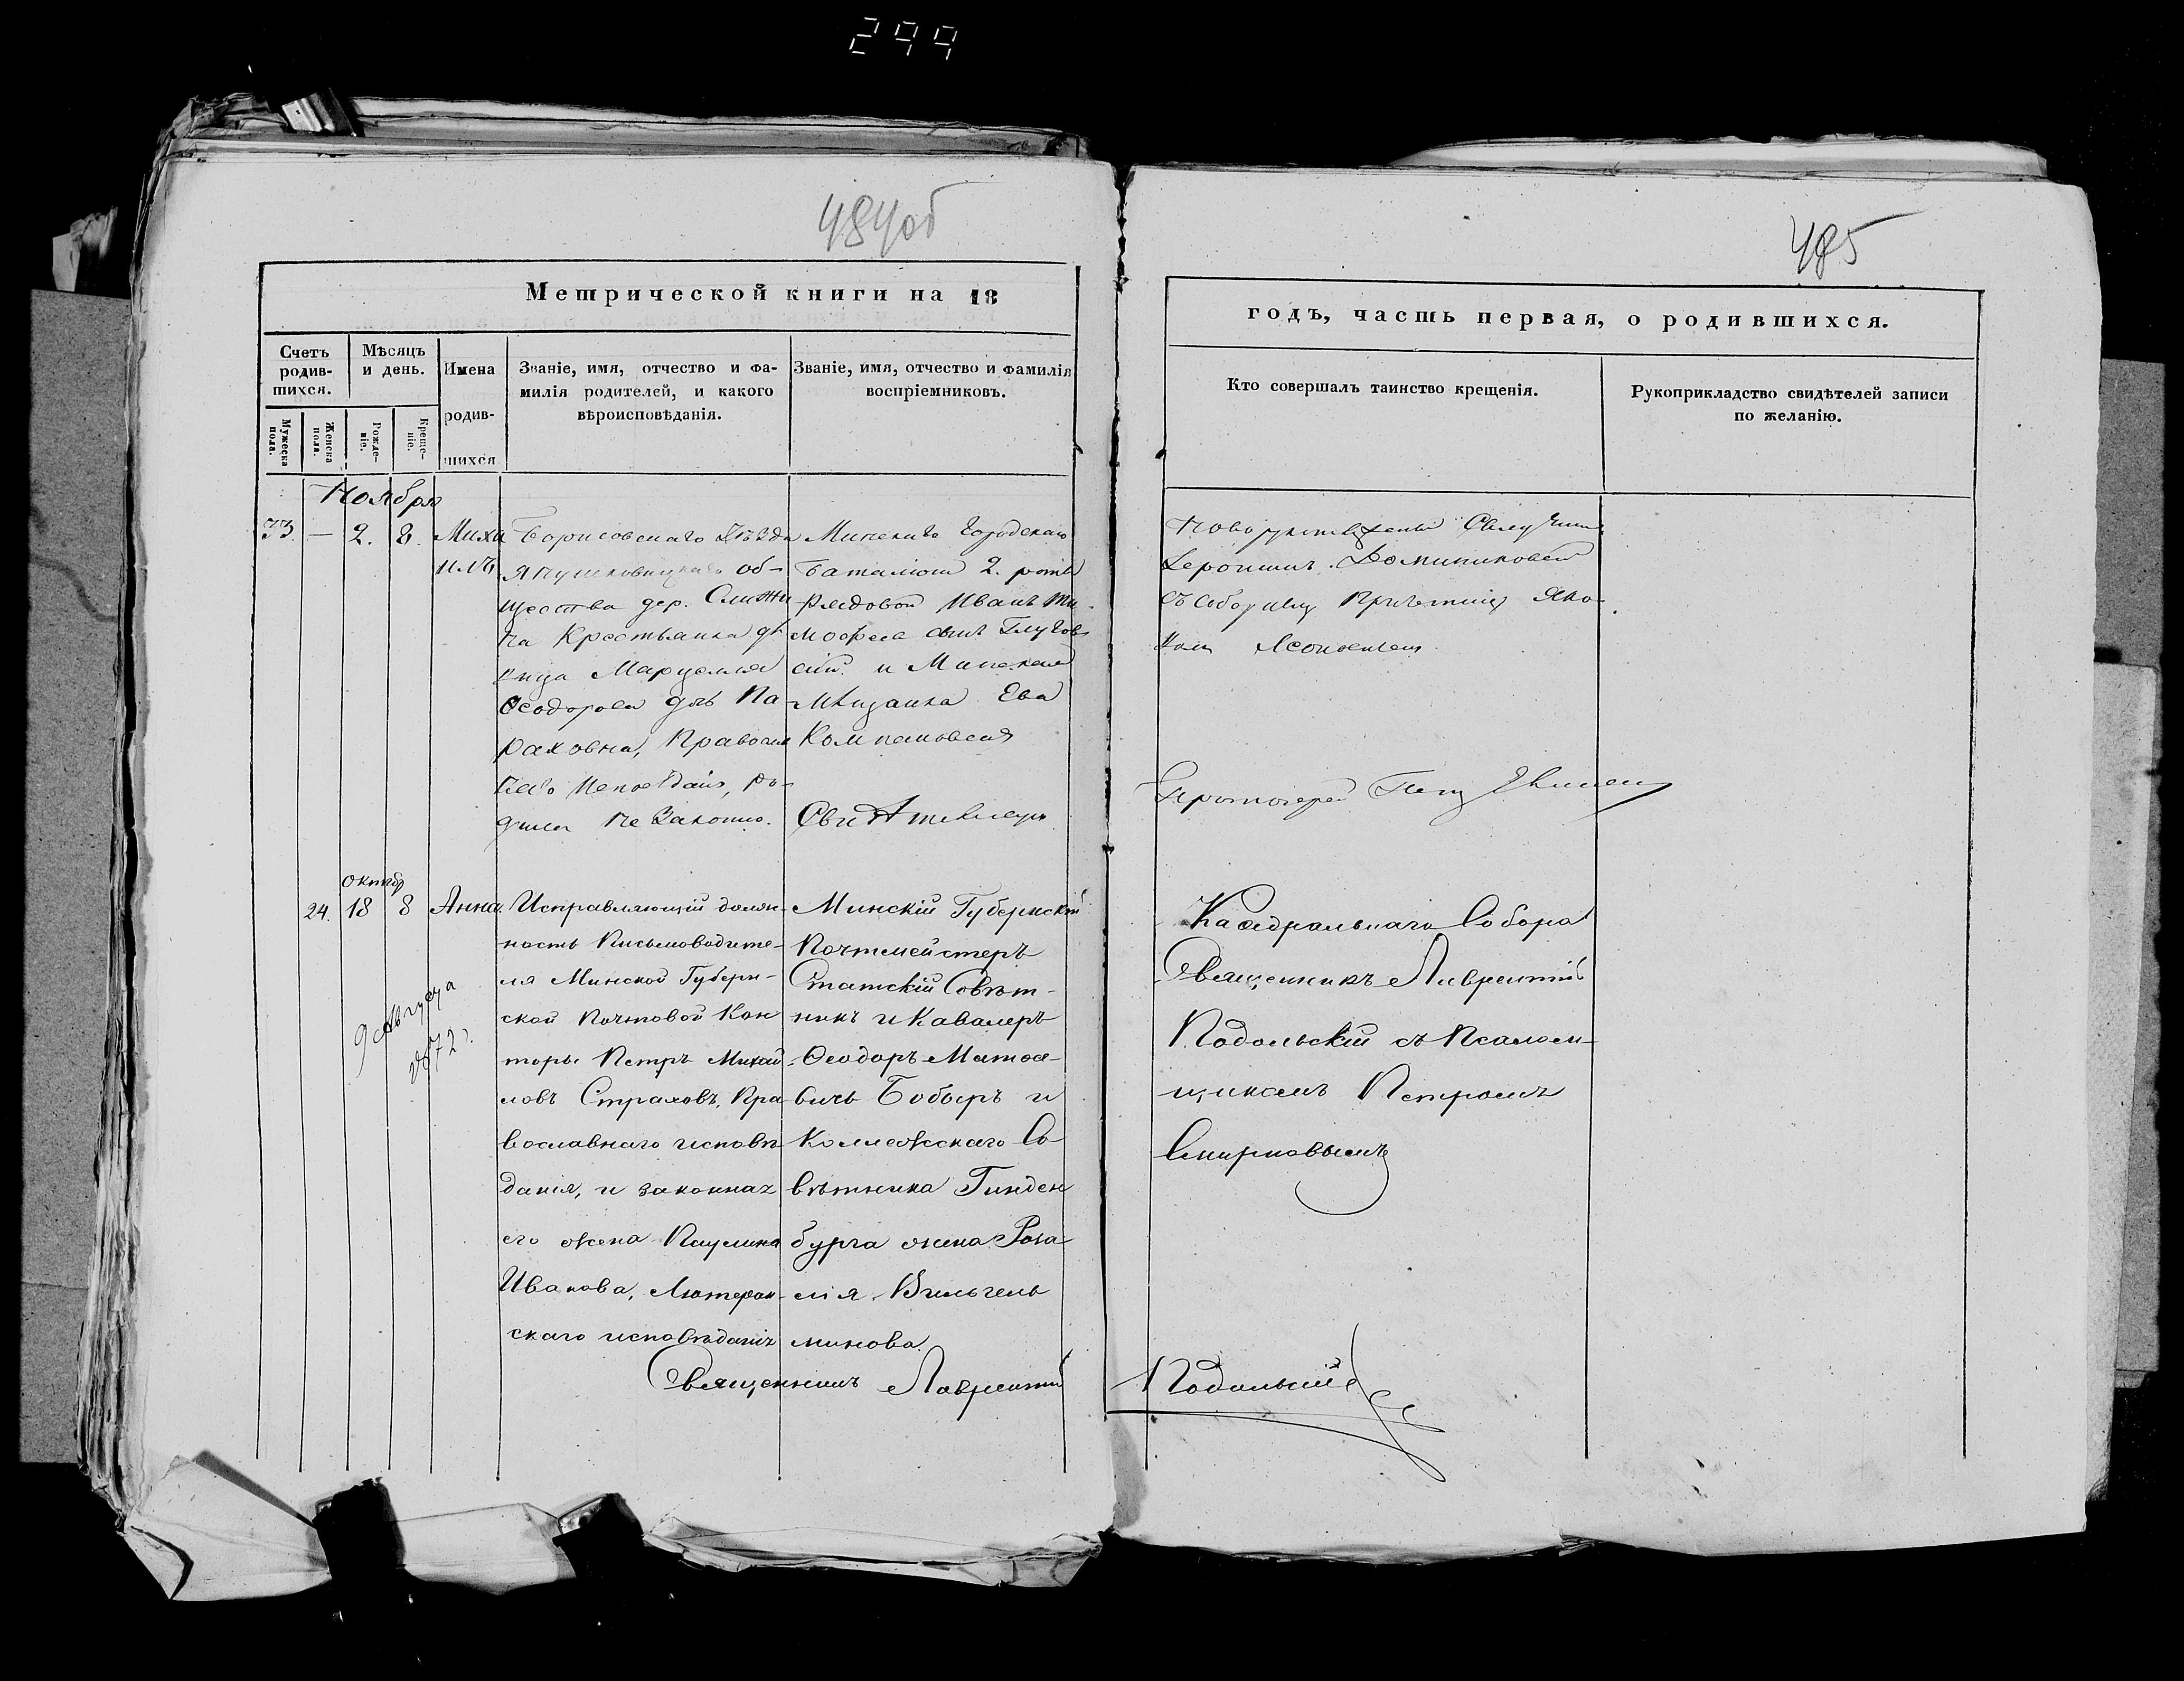 299
484об
485
Метрической книги на 18
годъ, часть первая, о родившихся.
Счетъ родив-шихся.
Мѣсяцъ и день.
Имена родив-шихся
Званіе, имя, отчество и фа-
милія родителей, и какого
вѣроисповѣданія.
Званіе, имя, отчество и фамилія
воспріемниковъ.
Кто совершалъ таинство крещенія.
Рукоприкладство свидѣтелей записи
по желанію.
Мужеска пола.
Женска пола.
Рожде-ніе.
Креще-ніе.
Ноября
33. — 2. 8. Михаилъ
Борисовскаго Уѣзда
об-
щества дер.
на Крестьянка дѣ
вица Марцелла
Ѳеодорова дчь Па
раховна, Правосла
внаго Исповѣданія, ро
дила не Законно.
Минскаго Городскаго
Баталіона 2. роты
Рядовой Иванъ Ти
моѳеевъ сынъ
скій и Минская
Мѣщанка Ева
Свидѣтельствую
Іеромонахъ
съ Соборнымъ Причетникомъ
Протоіерей
октяб
24. 18 8 Анна.
Исправляющій долж-
ность Письмоводите-
ля Минской Губерн-
ской Почтовой Кон
торы Петръ Михай
ловъ Страховъ, Пра
вославнаго исповѣ
данія, и законная
его жена Паулина
Иванова, Лютеран-
скаго исповѣданія
Минскій Губернскій
Почтмейстеръ
Статскій Совѣт-
никъ и Кавалеръ
Ѳеодоръ Матвѣ-
вичъ Бобыръ и
Коллежскаго Со
вѣтника Гинден
бурга жена Роза-
лія Вильгель
минова.
Каѳедральнаго Собора
Священникъ Лаврентій
Подольскій съ Псалом-
щикомъ Петромъ
Смирновымъ
9 августа
1872 г.
Священникъ Лаврентій Подольскій